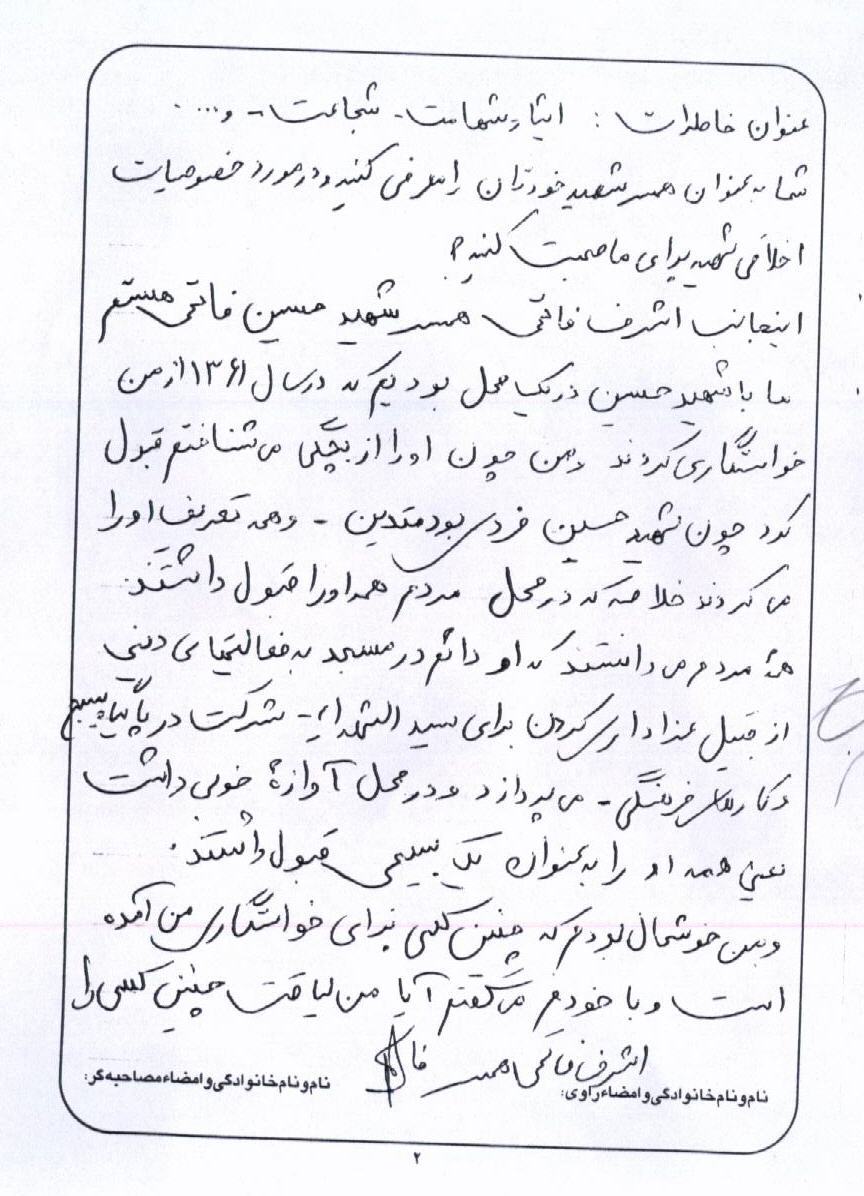 عنوان خاطرات : ایثار و شهامت - شجاعت - و....
شما به عنوان همسر شهید خودتان را معرفی کنید و در مورد خصوصیات
اخلاقی شهید برای ما صحبت کنید؟
اینجانب اشرف فاتحی همسر شهید حسین فاتحی هستم
ما با شهید حسین در یک محل بودیم که در سال ۱۳۶۱ از من
خواستگاری کردند و من چون او را از بچگی می شناختم قبول
کرد چون شهید حسین فردی بود متدین - و همه تعریف او را
می کردند خلاصه که در محل مردم همه او را قبول داشتند
همۀ مردم می دانستند که او دائم در مسجد به فعالیتهای دینی
از قبیل عزاداری کردن برای سید الشهدا - شرکت در پایگاه بسیج
و کارهای فرهنگی - می پردازد و در محل آوازۀ خوبی داشت
یعنی همه او را به عنوان یک بسیجی قبول داشتند.
و من خوشحال بودم که چنین کسی برای خواستگاری من آمده
است و با خودم می گفتم آیا من لیاقت چنین کسی را
اشرف فاتحی همسر
نام و نام خانوادگی و امضاء راوی: نام و نام خانوادگی و امضاء مصاحبه گر:
۲